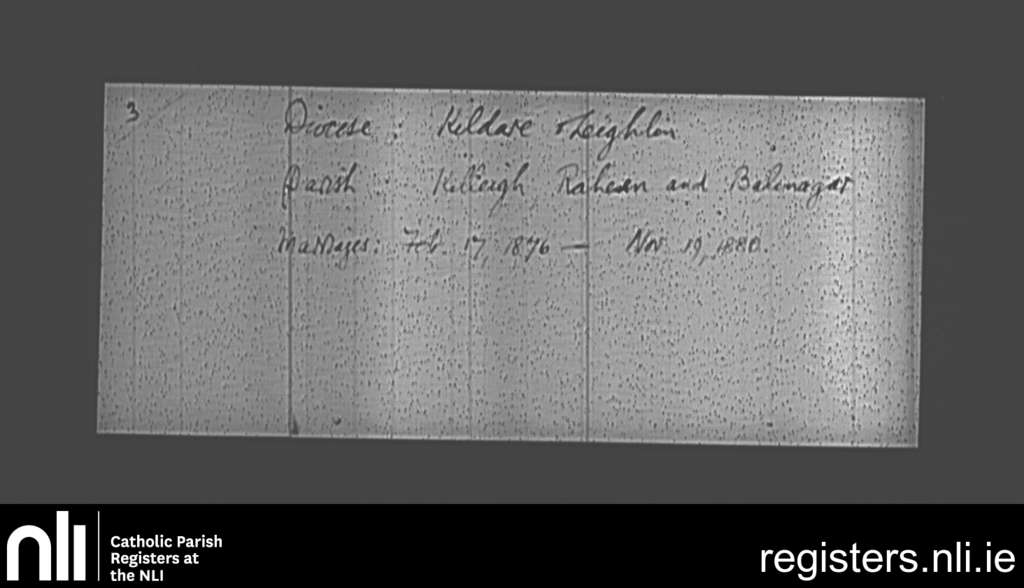 3
Diocese : Kildare & Leighlin
Parish : Killeigh Raheen and Balinagar
Marriages: Feb. 17, 1876 — Nov. 19, 1880.
nli
Catholic Parish
Registers at
the NLI
registers.nli.ie